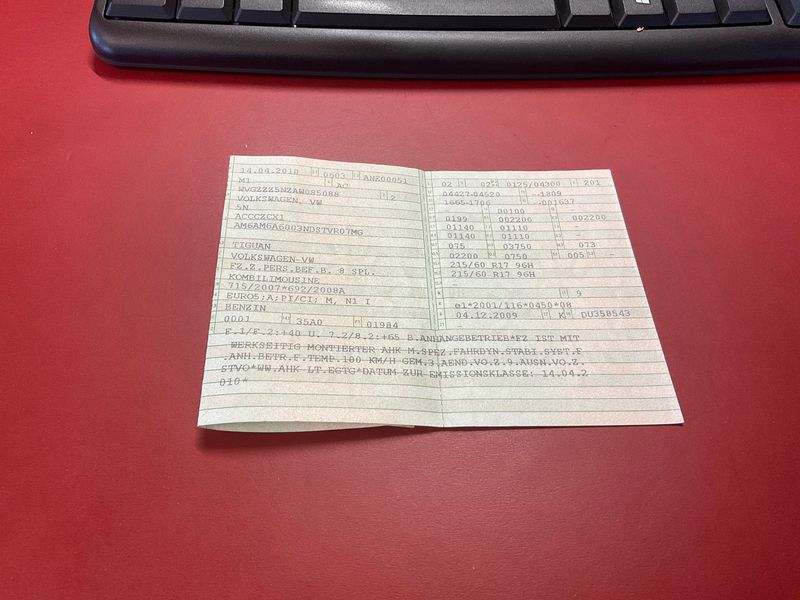 14.04.2010 0603 ANE00051
M1 AC
WVGZZZ5NZAW085088 2
VOLKSWAGEN, VW
5N
ACCCZCX1
AM6AM6A6003NDSTVR07MG
TIGUAN
VOLKSWAGEN-VW
FZ.Z.PERS.BEF.B. 8 SPL.
KOMBILIMOUSINE
715/2007*692/2008A
EURO5;A;PI/CI; M, N1 I
BENZIN
0001 35A0 01984
02 02 0125/04300 201
04427-04520 --1809
1665-1706 --001637
00100
0199 002200 002200
01140 01110 -
01140 01110 -
075 03750 073
02200 0750 005 -
215/60 R17 96H
215/60 R17 96H
-
- 9
e1*2001/116*0450*08
04.12.2009 K DU358543
-
F.1/F.2:+40 U. 7.2/8.2:+65 B.ANHANGEBETRIEB*FZ IST MIT
WERKSEITIG MONTIERTER AHK M.SPEZ.FAHRDYN.STABI.SYST.F
.ANH.BETR.F.TEMP.100 KM/H GEM.3.AEND.VO.Z.9.AUSN.VO.Z.
STVO*WW.AHK LT.EGTG*DATUM ZUR EMISSIONSKLASSE: 14.04.2
010*